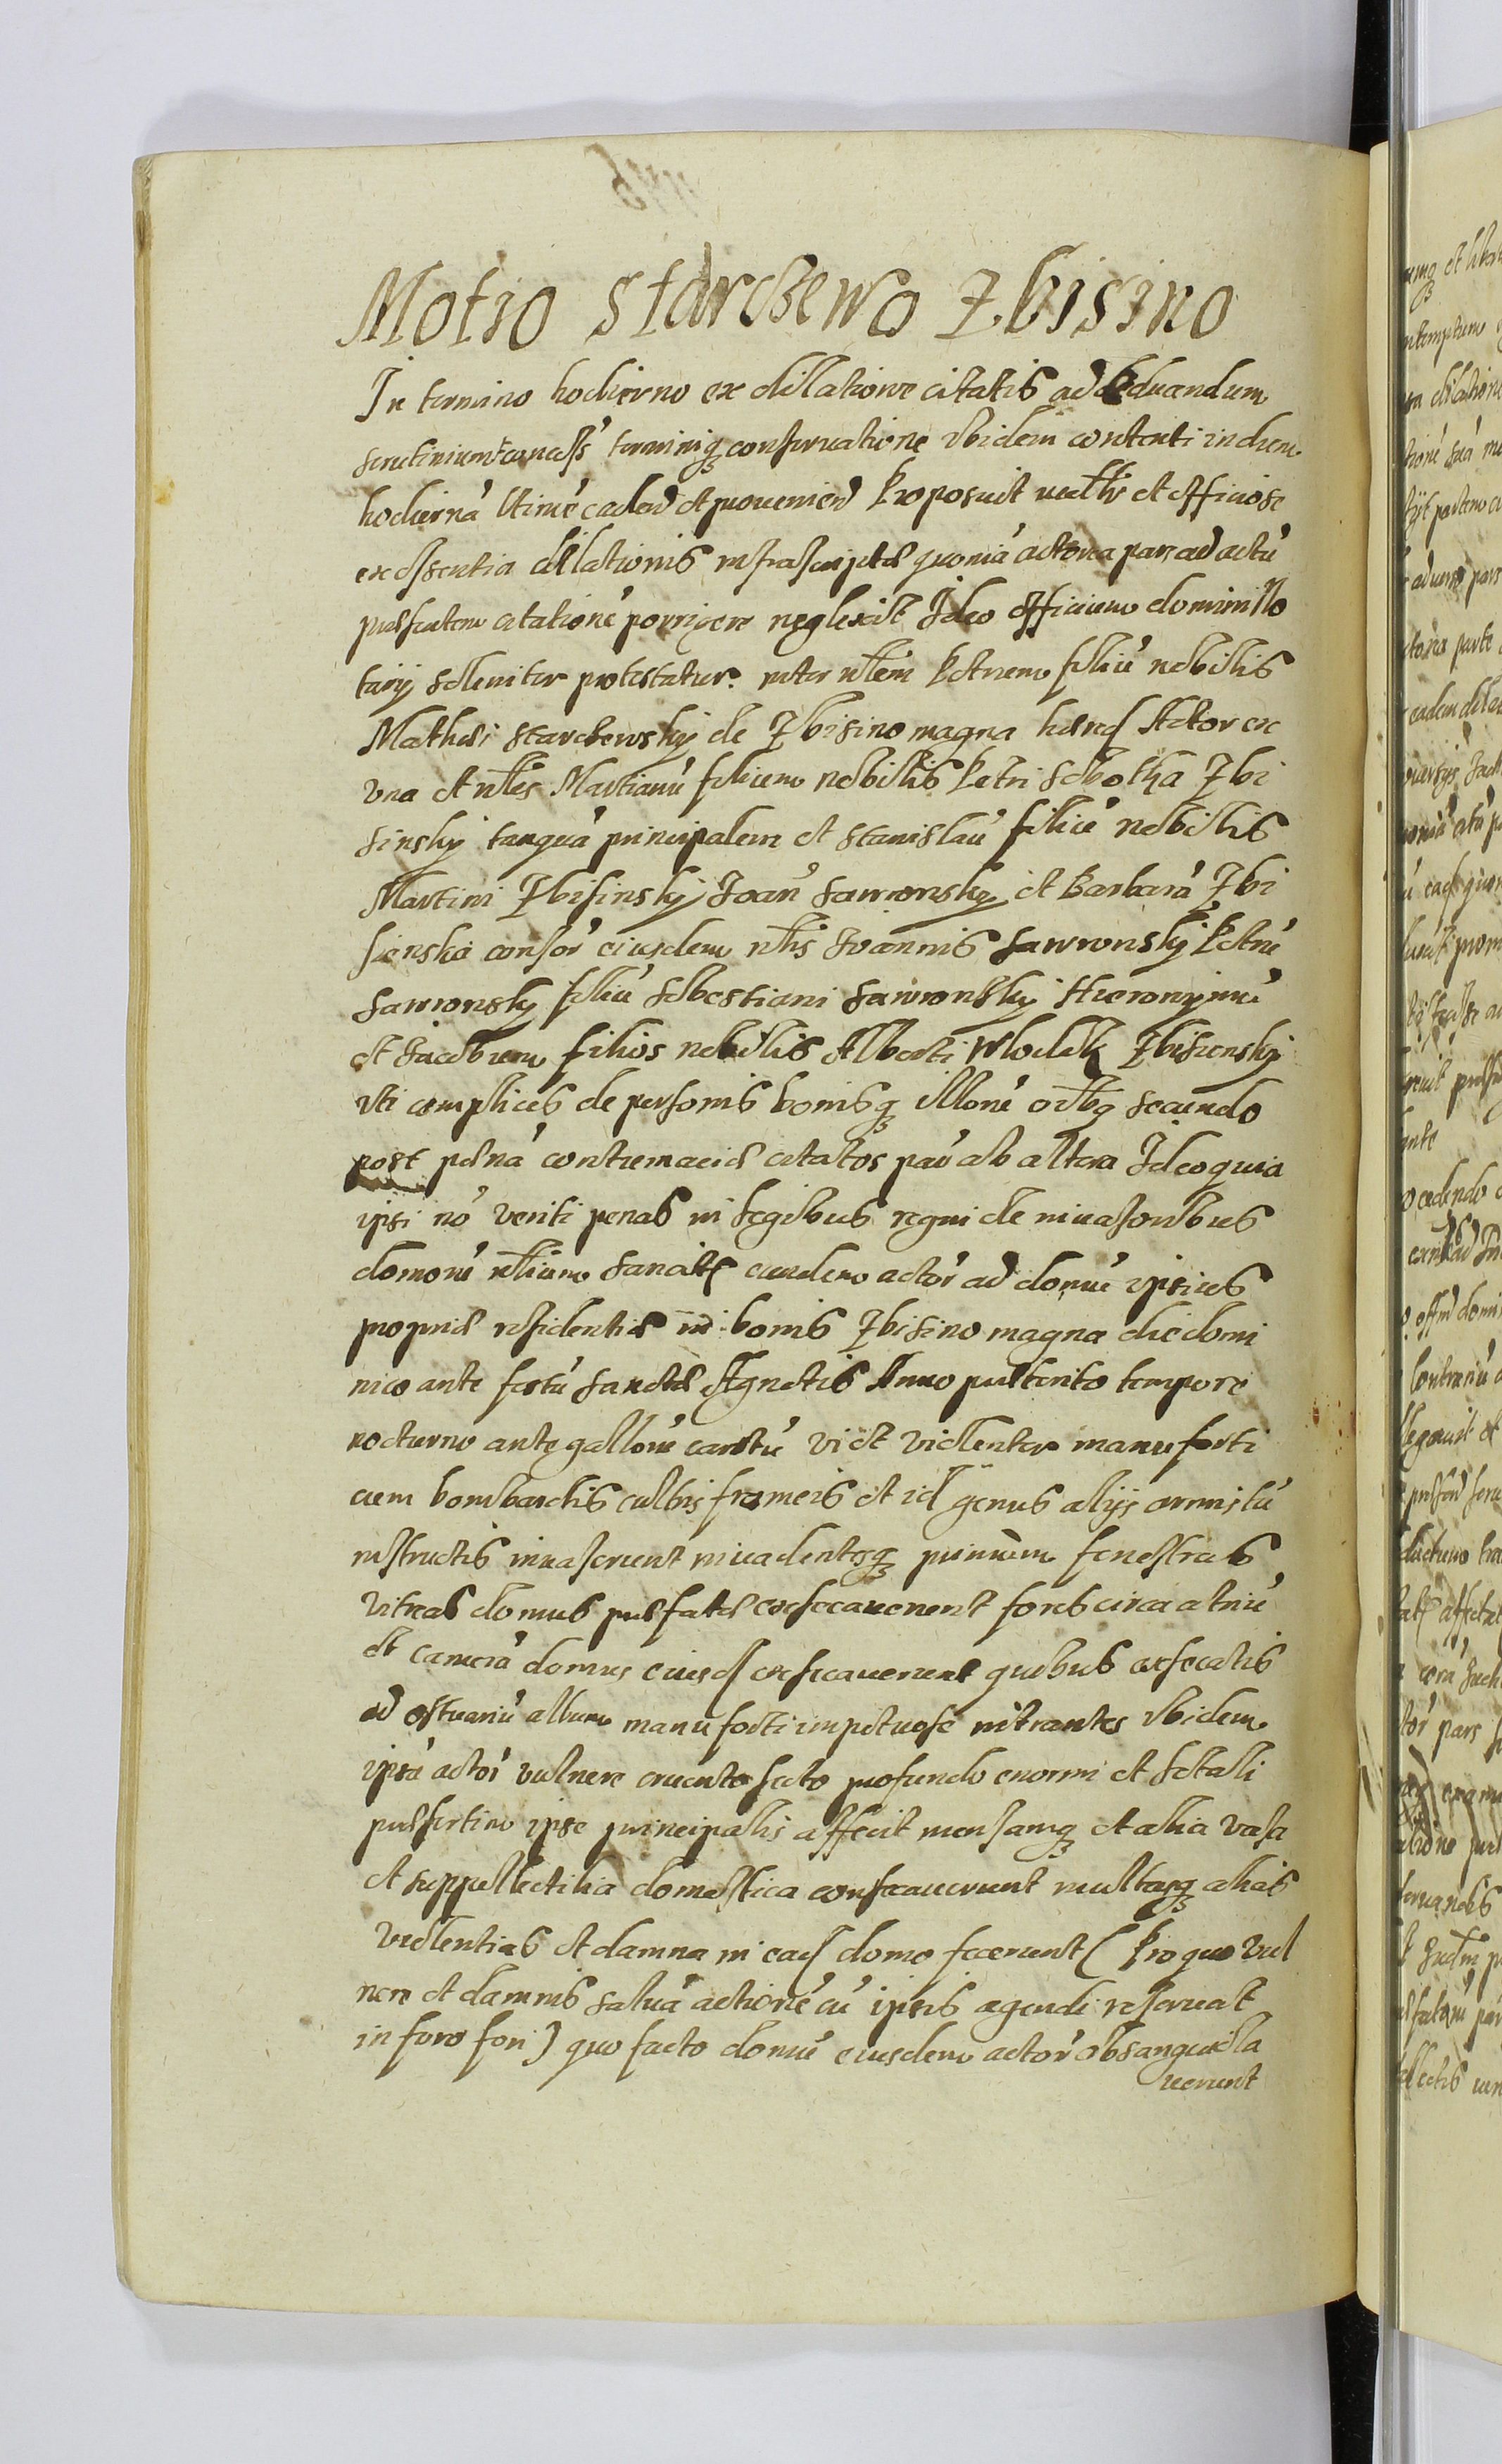 Motio Starczewo Zbisino
In termino hodierno ex dilatione citatis ad deducendum
scrutinium concess terminiq conservatione ibidem contenti in diem
hodierna Itine caden et provenien Proposuit et officiose
ex essentia dilationis infrascriptae quonia actorea pars ad actu
presentem citatione porrigere neglexit Ideo officium domini No
tarij soleniter protestatur. inter nblem Petrum filiu nobilis
Mathei Starczewsky de Zbisino magna hered Actor ex
una et nbles Martianu filium Nobilis Petri Sobotka Zbi
sinsky tanqua principalem et Stanislau filiu nobilis
Martini Zbisinsky Joan Sawronsky et Barbara Zbi
sienska consor eiusdem nblis Joannis Sawronsky Petru
Sawronsky filiu Sebestiani Sawronsky Hieronymu
et Jacobum filios nobilis Alberti Wlodek Zbisiensky
uti complices de personis bonisq illoru oibq secundo
post pena contumaciae citatos par ab altera Ideo quia
ipsi no veriti penas in legibus regni de invasoribus
domoru nblium sancit eundem actor ad domu ipsius
propriae residentiae in bonis Zbisino magna die domi
nico ante festu sanctae Agnetis Anno praeterito tempore
nocturno ante galloru cantu vi et violenter manu forti
cum bombardis cultris frameis et id genus alijs armis tu
instructis invaserunt invadentesq primum fenestras
vitreas domus praefatae exsecaverunt fores circa atriu
et camera domus eiusd exsecaverunt quibus exsecatis
ad estuariu album manu forti impetuose intrantes ibidem
ipsu actor vulnere cruento secto profundo enormi et letali
praesertim ipse principalis affecit mensamq et alia vasa
et suppellectilia domestica consecaverunt multasq alias
violentias et damna in ead domo fecerunt ( Pro quo vul
nere et damnis salva actione cu ipsis agendi reservat
in foro fori ) quo facto domu eiusdem actor obsanguila
verunt